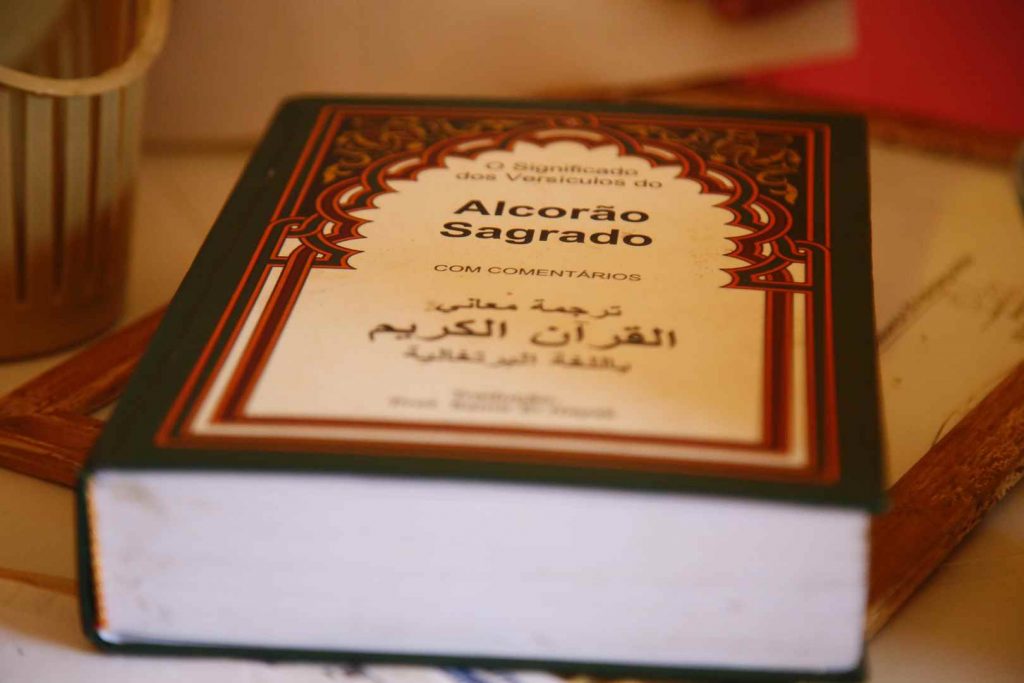 O Significado
dos Versículos do
Alcorão
Sagrado
COM COMENTÁRIOS
ترجمة معاني
القرآن الكريم
باللغة البرتغالية